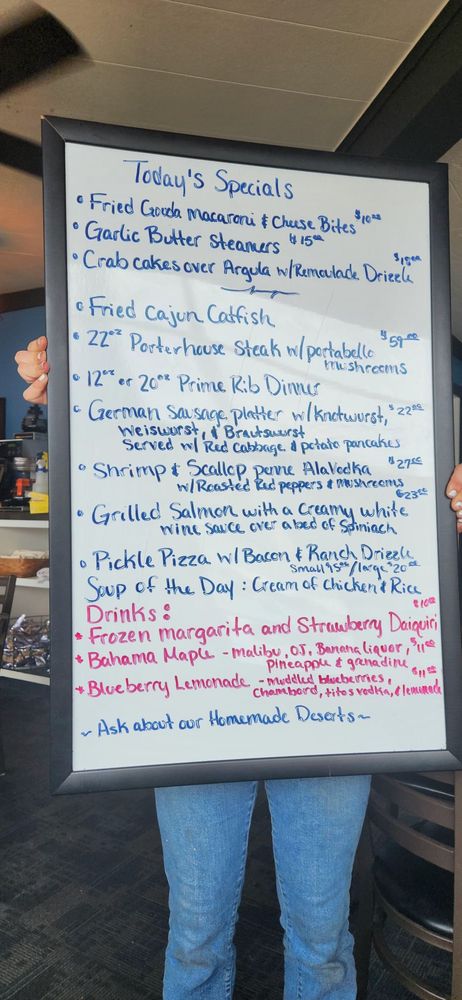 Today's Specials
• Fried Gouda macaroni & Cheese Bites $10.00
• Garlic Butter Steamers $15.00
• Crab cakes over Argula w/Remoulade Drizzle
• Fried Cajun Catfish
• 22oz Porterhouse Steak w/portabello $59.00
mushrooms
• 12oz or 20oz Prime Rib Dinner
• German Sausage platter w/Knotwurst, $22.00
Weiswurst, & Bratswurst
Served w/ Red Cabbage & potato pancakes
• Shrimp & Scallop penne AlaVodka $27.00
w/Roasted Red peppers & mushrooms
$23.00
• Grilled Salmon with a Creamy white
wine sauce over a bed of Spniach
• Pickle Pizza w/ Bacon & Ranch Drizzle
Small /large $20.00
Soup of the Day : Cream of Chicken & Rice
Drinks: $10.00
* Frozen margarita and Strawberry Daiquiri
* Bahama Maple - Malibu, OJ, Banana liquor, $11.00
pineapple & grenadine
* Blueberry Lemonade - muddled blueberries, $11.00
chambord, titos vodka, & lemonade
~ Ask about our Homemade Deserts ~